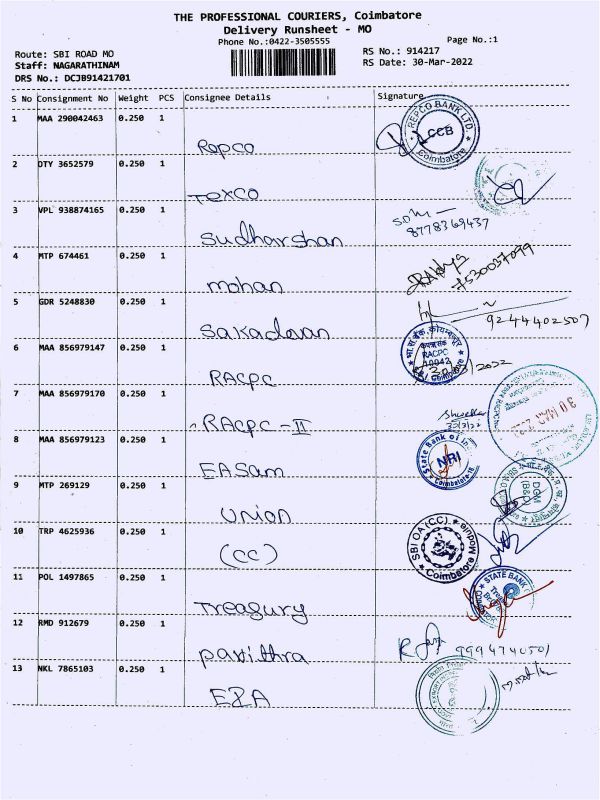 THE PROFESSIONAL COURIERS, Coimbatore
Delivery Runsheet - MO
Phone No.:0422-3505555
Page No.:1
Route: SBI ROAD MO
Staff: NAGARATHINAM
DRS No.: DCJB91421701
RS No.: 914217
RS Date: 30-Mar-2022
S No Consignment No Weight PCS Consignee Details Signature
1 MAA 290042463 0.250 1 Repco
REPCO BANK LTD. CCB Coimbatore
2 DTY 3652579 0.250 1 Texco
3 VPL 938874165 0.250 1 Sudharshan
8778369437
4 MTP 674461 0.250 1 mohan
7530037099
5 GDR 5248830 0.250 1 Sakadevan
9244402507
6 MAA 856979147 0.250 1 RACPC
RACPC
10042
Coimbatore
7 MAA 856979170 0.250 1 RACPC-II
30 MAR 202
8 MAA 856979123 0.250 1 EASam
State Bank of In
NRI
Coimbatore
9 MTP 269129 0.250 1 union
DGM
(B&O)
10 TRP 4625936 0.250 1 (CC)
SBI OA (CC) Module Coimbatore
11 POL 1497865 0.250 1 Treasury
STATE BANK
12 RMD 912679 0.250 1 pavithra
9994740501
13 NKL 7865103 0.250 1 E&A